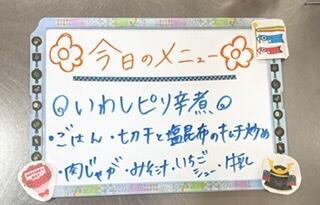 今日のメニュー
◎いわしピリ辛煮◎
・ごはん・切干と塩昆布のキムチ炒め
・肉じゃが・みそ汁・いちごシュー・牛乳